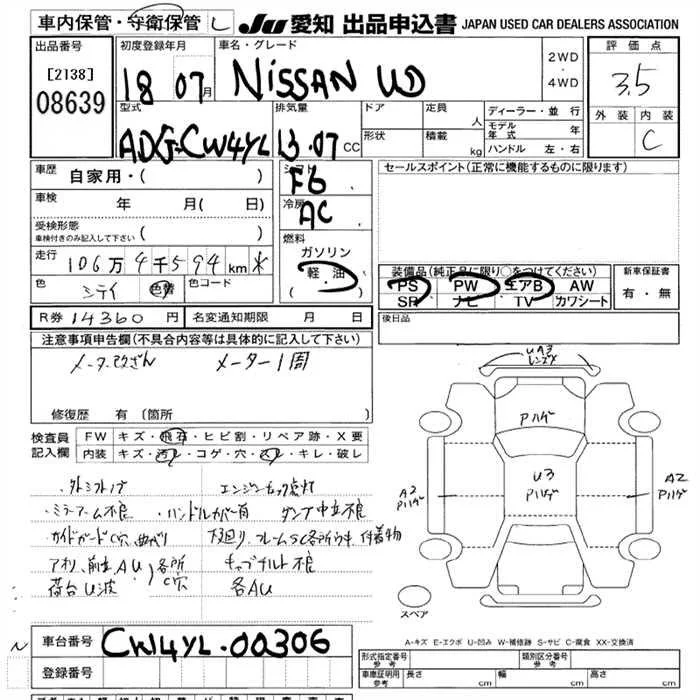 車内保管・守衛保管 し JU 愛知 出品申込書 JAPAN USED CAR DEALERS ASSOCIATION
出品番号 初度登録年月 車名・グレード 評価点
[2138] 08639 18 07月 NISSAN UD 2WD・4WD 3.5
型式 排気量 ドア 定員 人 ディーラー・並行 外装 内装
ADG-CW4YL 13.07 CC 形状 積載 kg モデル年式 年 C
ハンドル 左・右
車歴 自家用・( ) シフト F6 セールスポイント(正常に機能するものに限ります)
車検 年 月( 日) 冷房 AC
受検形態 車検付きのみ記入して下さい ( ) 燃料 ガソリン
走行 106万4千594km ( 軽・油 ) 装備品(純正品に限り○をつけてください) 新車保証書
色 シテイ 色替 色コード PS PW エアB AW 有・無
SR ナビ TV カワシート
R券 14360円 名変通知期限 月 日 後日品
注意事項申告欄(不具合内容等は具体的に記入して下さい)
メーター改ざん メーター1周
修復歴 有(箇所 )
UA3
レンズX
Pハゲ
U3
Pハゲ
A2
Pハゲ
A2
Pハゲ
検査員 記入欄 FW キズ・飛石・ヒビ割・リペア跡・X要
内装 キズ・汚レ・コゲ・穴・スレ・キレ・破レ
・ミラーアーム不良 ・ハンドルカバー有 ダンプ中立不良
サイドガードC穴、曲がり 下廻り、フレームSC各所ウキ 付着物
アオリ、前立AU 各所C穴
荷台U波 各AU
スペア
A-キズ E-エクボ U-凹み W-補修跡 S-サビ C-腐食 XX-交換済
車台番号 CW4YL-00306
登録番号
形式指定番号 参考 類別区分番号 参考
車庫証明用 参考 長さ 幅 高さ